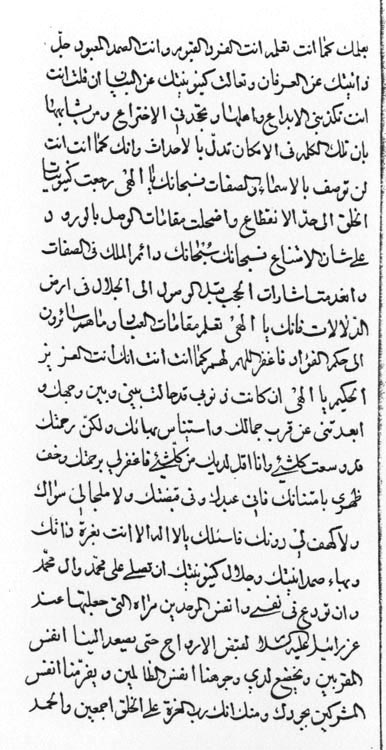 بعلمك كما انت تعلم انت الفرد القيوم وانت الصمد المعبود جل
ذاتيتك عن العرفان وتعالت كينونيتك عن البيان ان قلت انت
انت تكذبني الابداع واهلها وتجحدني الاختراع ومن شابهها
بان تلك الكلمة في الامكان تدل بالاحداث وانك كما انت انت
لن توصف بالاسماء والصفات فسبحانك يا الهي رجعت كينونيات
الخلق الى حد الانقطاع واضمحلت مقامات الوصل بالورود
على شان الامتناع فسبحانك سبحانك دائم الملك في الصفات
اشارات الحجب قبل الوصول الى الجلال في ارض
الدلالات فانك يا الهي تعلم مقامات العباد وما هم سائرون
الى حكم الفؤاد فاغفر اللهم لهم كما انت انت انك انت العزيز
الحكيم يا الهي ان كانت ذنوبي قد حالت بيني وبين وجهك و
ابعدتني عن قرب جمالك واستيناس بهائك ولكن رحمتك
قد وسعت كلشيئ وانا اقل لديك من كلشيئ فاغفر لي برحمتك وخفف
ظهري بامتنانك فاني عبدك وفي قبضتك ولا ملجا لي سواك
ولا كهف لي دونك فاسئلك يا لا اله الا انت بعزة ذاتك
وبهاء صمدانيتك وجلال كينونيتك ان تصلي على محمد وال محمد
وان تودع في نفسي وانفس الموحدين مراة التي جعلتها عند
عزرائيل عليه السلام لقبض الارواح حتى يصعد الينا انفس
المقربين ويخضع لدي وجوهنا انفس الظالمين ويفر منا انفس
المشركين بجودك ومنك انك رب العزة على الخلق اجمعين والحمد